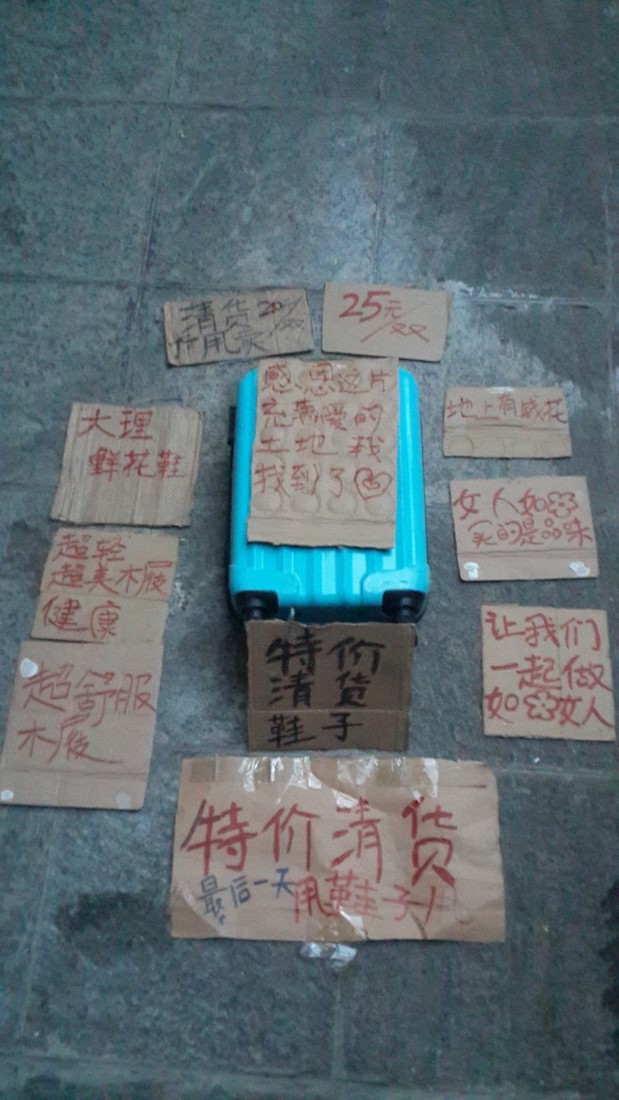 清货20元/双
甩卖
25元/双
感恩这片
充满爱的
土地我
找到了
地上有感花
大理
鲜花鞋
女人如
买的是品味
超轻
超美木屐
健康
让我们
一起做
如女人
超舒服
木屐
特价
清货
鞋子
特价清货
最后一天甩鞋子甩